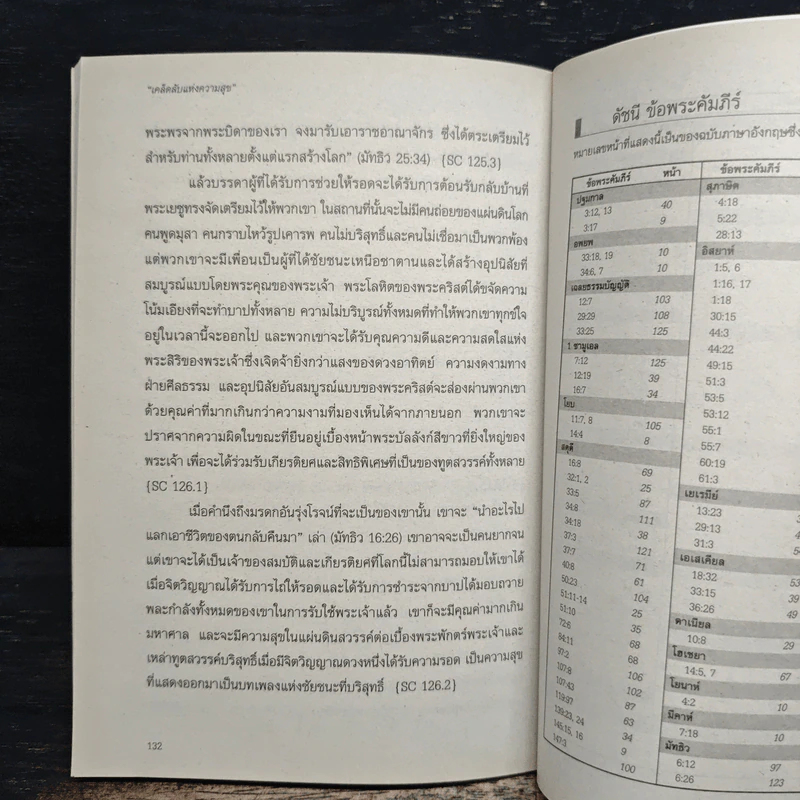 "เคล็ดลับแห่งความสุข"
พระพรจากพระบิดาของเรา จงมารับเอาราชอาณาจักร ซึ่งได้ตระเตรียมไว้
สำหรับท่านทั้งหลายตั้งแต่แรกสร้างโลก" (มัทธิว 25:34) {SC 125.3}
แล้วบรรดาผู้ที่ได้รับการช่วยให้รอดจะได้รับการต้อนรับกลับบ้านที่
พระเยซูทรงจัดเตรียมไว้ให้พวกเขา ในสถานที่นั้นจะไม่มีคนถ่อยของแผ่นดินโลก
คนพูดมุสา คนกราบไหว้รูปเคารพ คนไม่บริสุทธิ์และคนไม่เชื่อมาเป็นพวกพ้อง
แต่พวกเขาจะมีเพื่อนเป็นผู้ที่ได้ชัยชนะเหนือซาตานและได้สร้างอุปนิสัยที่
สมบูรณ์แบบโดยพระคุณของพระเจ้า พระโลหิตของพระคริสต์ได้ขจัดความ
โน้มเอียงที่จะทำบาปทั้งหลาย ความไม่บริบูรณ์ทั้งหมดที่ทำให้พวกเขาทุกข์ใจ
อยู่ในเวลานี้จะออกไป และพวกเขาจะได้รับคุณความดีและความสดใสแห่ง
พระสิริของพระเจ้าซึ่งเจิดจ้ายิ่งกว่าแสงของดวงอาทิตย์ ความงดงามทาง
ฝ่ายศีลธรรม และอุปนิสัยอันสมบูรณ์แบบของพระคริสต์จะส่องผ่านพวกเขา
ด้วยคุณค่าที่มากเกินกว่าความงามที่มองเห็นได้จากภายนอก พวกเขาจะ
ปราศจากความผิดในขณะที่ยืนอยู่เบื้องหน้าพระบัลลังก์สีขาวที่ยิ่งใหญ่ของ
พระเจ้า เพื่อจะได้ร่วมรับเกียรติยศและสิทธิพิเศษที่เป็นของทูตสวรรค์ทั้งหลาย
{SC 126.1}
เมื่อคำนึงถึงมรดกอันรุ่งโรจน์ที่จะเป็นของเขานั้น เขาจะ "นำอะไรไป
แลกเอาชีวิตของตนกลับคืนมา" เล่า (มัทธิว 16:26) เขาอาจจะเป็นคนยากจน
แต่เขาจะได้เป็นเจ้าของสมบัติและเกียรติยศที่โลกนี้ไม่สามารถมอบให้เขาได้
เมื่อจิตวิญญาณได้รับการไถ่ให้รอดและได้รับการชำระจากบาปได้มอบถวาย
พละกำลังทั้งหมดของเขาในการรับใช้พระเจ้าแล้ว เขาก็จะมีคุณค่ามากเกิน
มหาศาล และจะมีความสุขในแผ่นดินสวรรค์ต่อเบื้องพระพักตร์พระเจ้าและ
เหล่าทูตสวรรค์บริสุทธิ์เมื่อมีจิตวิญญาณดวงหนึ่งได้รับความรอด เป็นความสุข
ที่แสดงออกมาเป็นบทเพลงแห่งชัยชนะที่บริสุทธิ์ {SC 126.2}
132
ดัชนี ข้อพระคัมภีร์
หมายเลขหน้าที่แสดงนี้เป็นของฉบับภาษาอังกฤษซึ่ง
ข้อพระคัมภีร์ หน้า
ปฐมกาล
3:12, 13 40
3:17 9
อพยพ
33:18, 19 10
34:6, 7 10
เฉลยธรรมบัญญัติ
12:7 103
29:29 108
33:25 125
1 ซามูเอล
7:12 125
12:19 39
16:7 34
โยบ
11:7, 8 105
14:4 8
สดุดี
16:8 69
32:1, 2 25
33:5 87
34:8 111
34:18 38
37:3 121
37:7 71
40:8 61
50:23 104
51:11-14 25
51:10 35
72:6 68
84:11 68
97:2 106
107:8 102
107:43 87
119:97 63
139:23, 24 34
145:15, 16 9
147:3 100
ข้อพระคัมภีร์
สุภาษิต
4:18
5:22
28:13
อิสยาห์
1:5, 6
1:16, 17
1:18
30:15
44:3
44:22
49:15
51:3
53:5
53:12
55:1
55:7
60:19
61:3
เยเรมีย์
13:23
29:13
31:3
เอเสเคียล
18:32 53
33:15 39
36:26 49
ดาเนียล
10:8 29
โฮเชยา
14:5, 7 67
โยนาห์
4:2 10
มีคาห์
7:18 10
มัทธิว
6:12 97
6:26 123